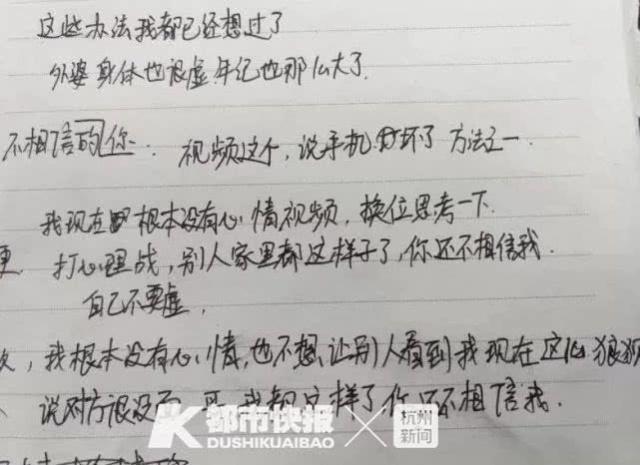 这些办法我都已经想过了
外婆身体也很虚年纪也那么大了
不相信的你: 视频这个,说手机坏了 方法之一
我现在根本没有心情视频,换位思考一下
更. 打心理战,别人家里都这样子了,你还不相信我.
自己不要虚,
,我根本没有心情,也不想让别人看到我现在这么狼狈
说对方很没 我都这样了你还不相信我.
K都市快报
DUSHIKUAIBAO
杭州
新闻